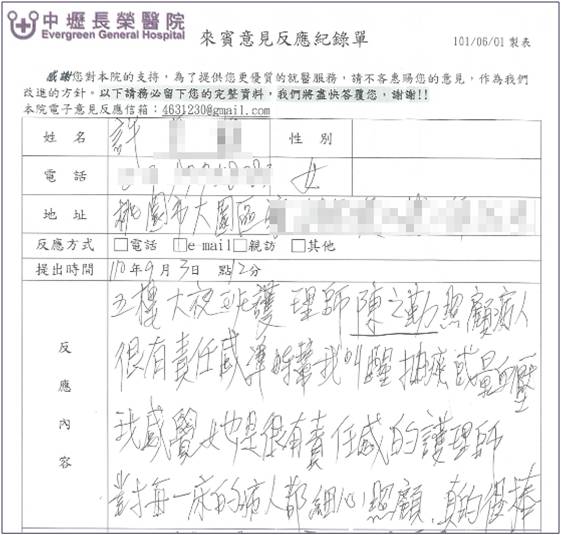 中壢長榮醫院
Evergreen General Hospital
來賓意見反應紀錄單
101/06/01 製表
感謝您對本院的支持，為了提供您更優質的就醫服務，請不吝惠賜您的意見，作為我們
改進的方針。以下請務必留下您的完整資料，我們將盡快答覆您，謝謝!!
本院電子意見反應信箱：4631230@gmail.com
姓名 許 性別
電話 女
地址 桃園市大園區
反應方式 □電話 □e mail □親訪 □其他
提出時間 110年9月3日 點12分
反應內容
五樓大夜班護理師陳之勤照顧病人
很有責任感 幫我叫醒抽痰或量血壓
我感覺她是很有責任感的護理師
對每一床的病人都細心照顧，真的很棒